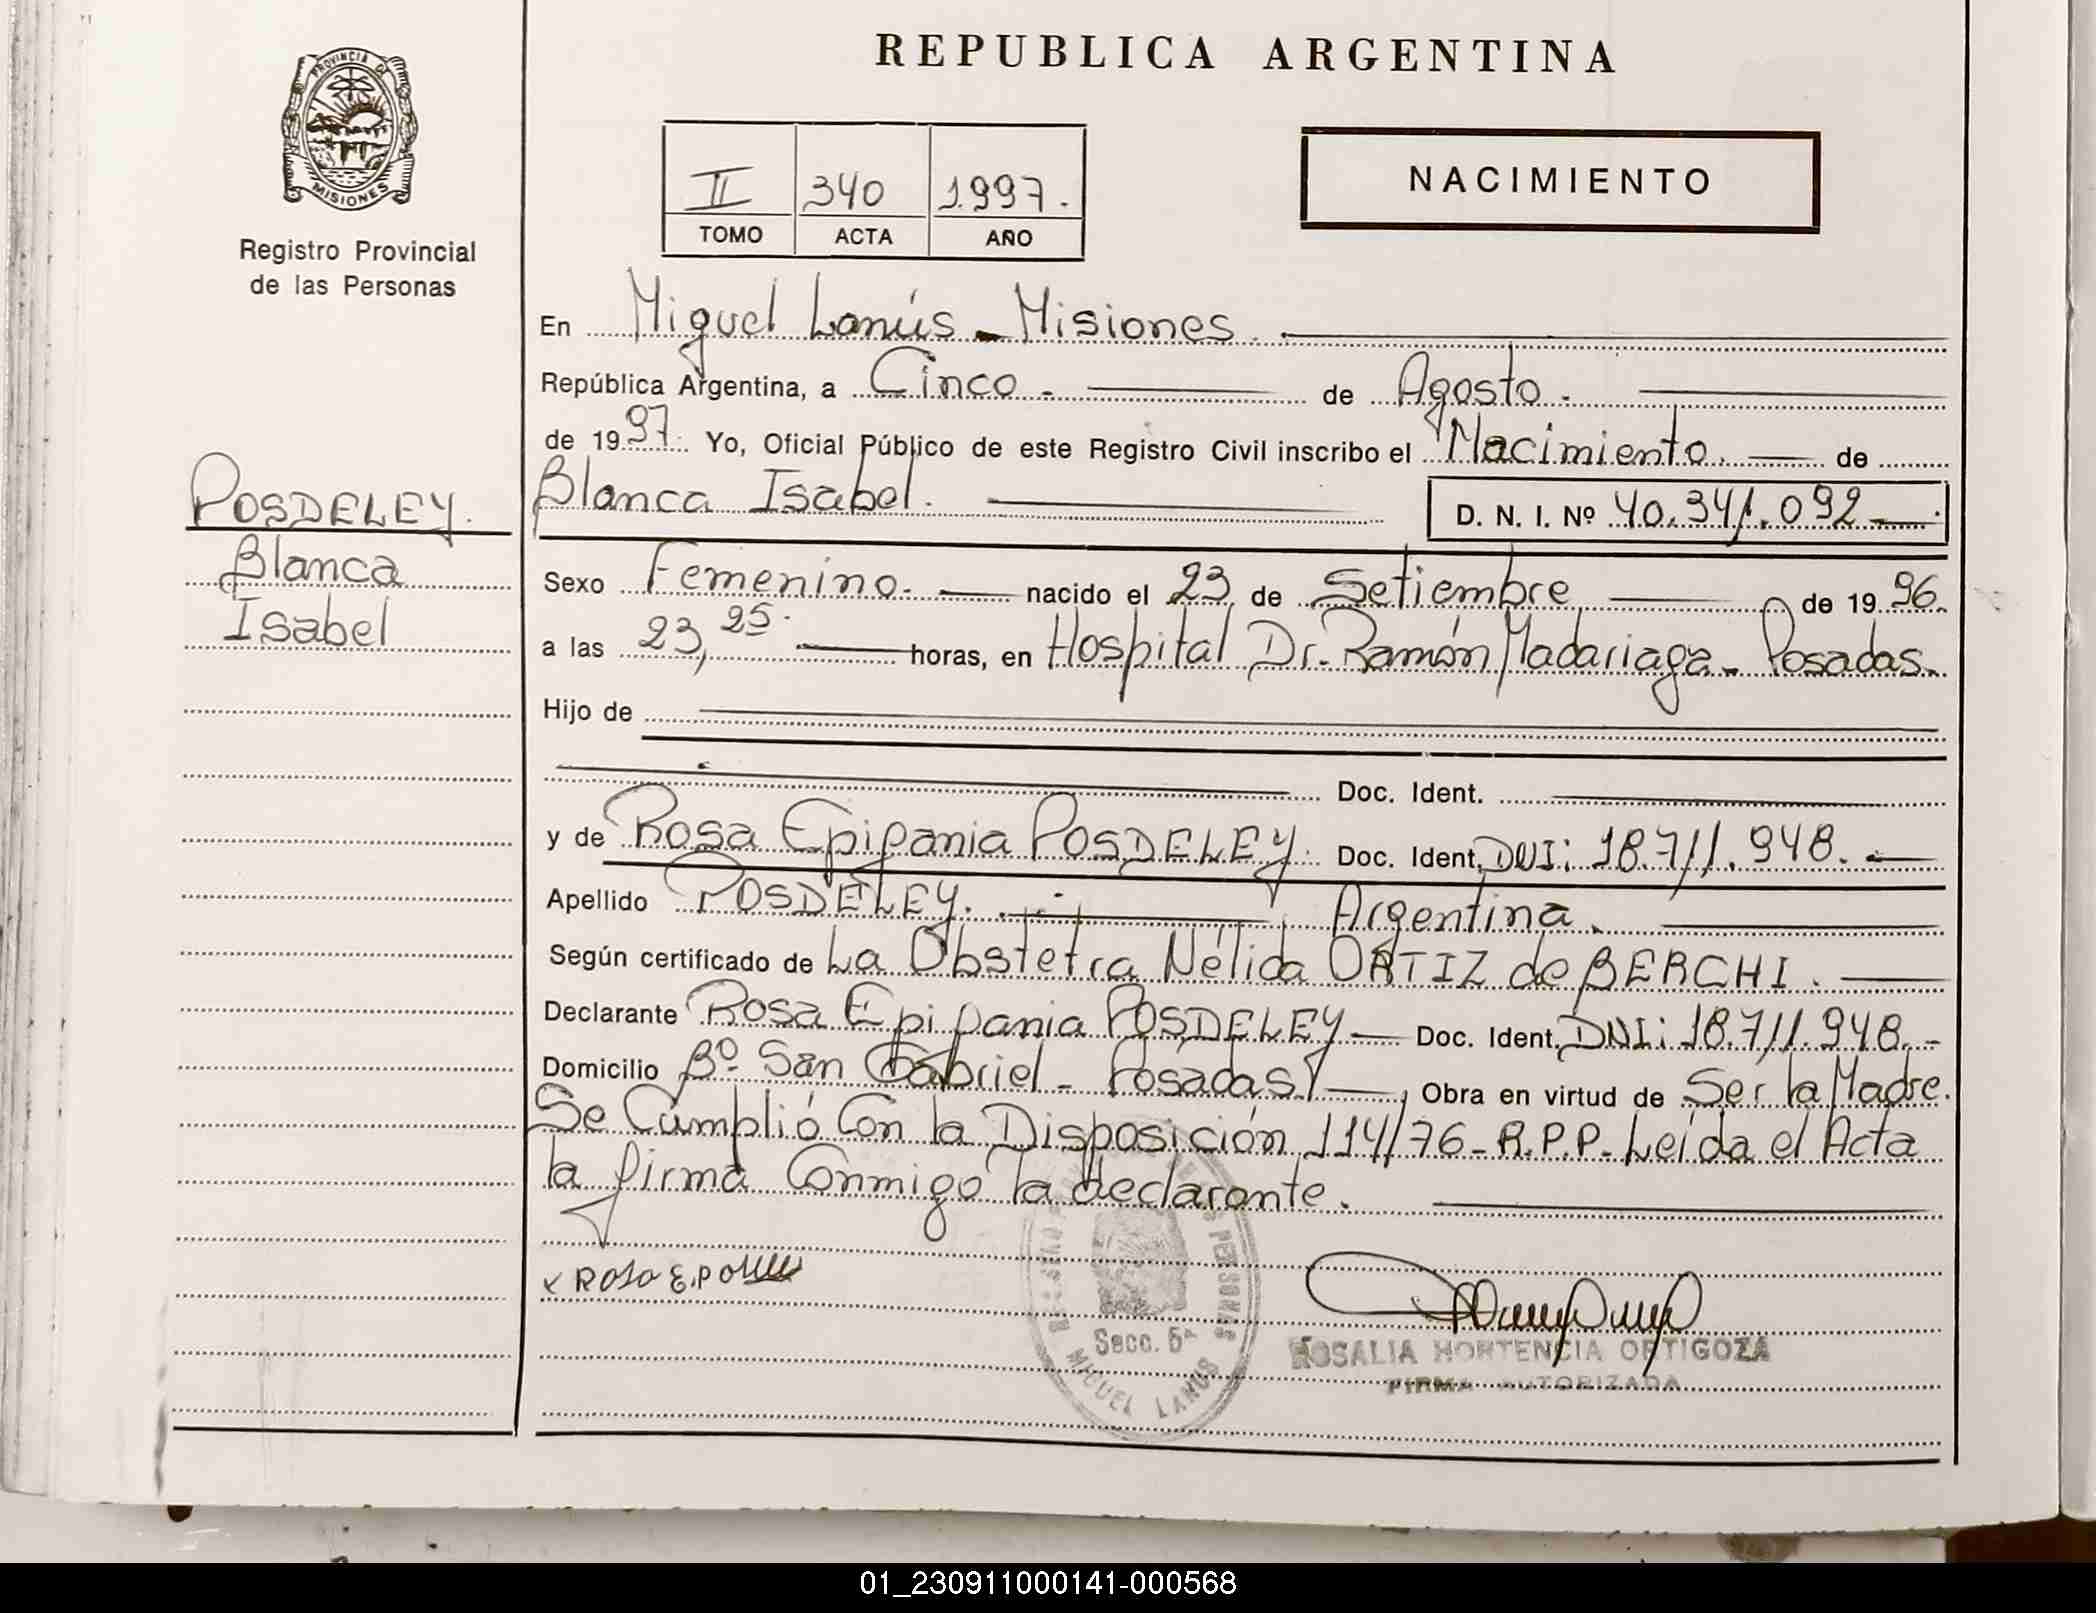 REPUBLICA ARGENTINA
PROVINCIA DE
MISIONES
Registro Provincial
de las Personas
II 340 1.997.
TOMO ACTA AÑO
NACIMIENTO
En Miguel Lanús - Misiones.
República Argentina, a Cinco. de Agosto.
de 1997. Yo, Oficial Público de este Registro Civil inscribo el Nacimiento. de
Blanca Isabel. D. N. I. Nº 40.341.092
POSDELEY.
Blanca
Isabel
Sexo Femenino. nacido el 23 de Setiembre de 1996.
a las 23,25. horas, en Hospital Dr. Ramón Madariaga - Posadas.
Hijo de
Doc. Ident.
y de Rosa Epifania POSDELEY. Doc. Ident. DNI: 18.711.948.
Apellido POSDELEY. Argentina.
Según certificado de La Obstetra Nélida ORTIZ de BERCHI.
Declarante Rosa Epifania POSDELEY Doc. Ident. DNI: 18.711.948.
Domicilio Bº San Gabriel - Posadas Obra en virtud de Ser la Madre.
Se Cumplió Con la Disposición 114/76 - R.P.P. Leída el Acta
la firma Conmigo la declarante.
x Rosa E. Po
Secc. 5ª
MIGUEL LANUS
ROSALIA HORTENCIA ORTIGOZA
FIRMA AUTORIZADA
01_230911000141-000568